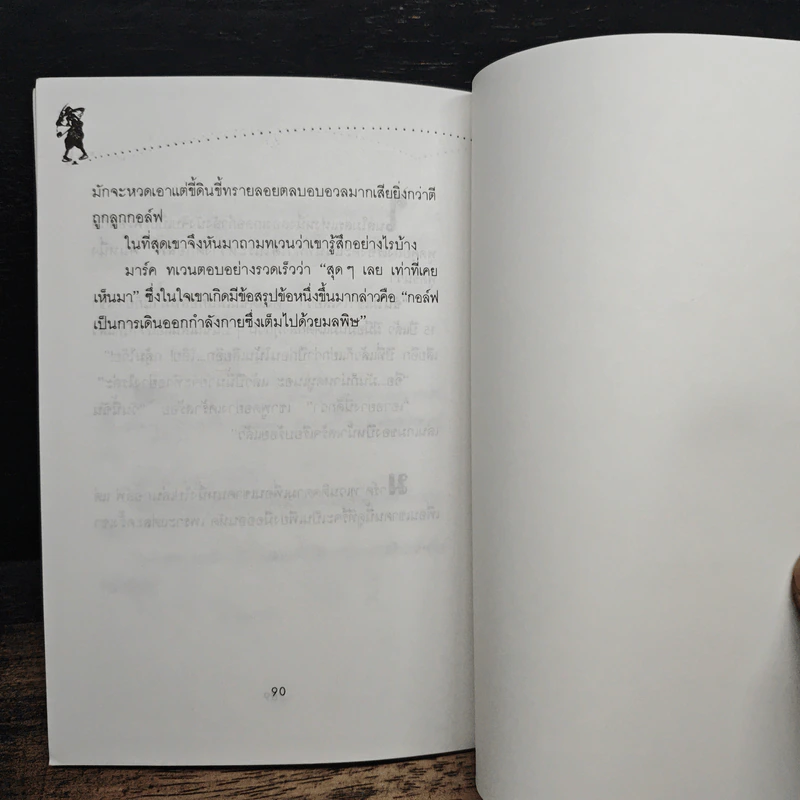 มักจะหวดเอาแต่ขี้ดินขี้ทรายลอยตลบอบอวลมากเสียยิ่งกว่าตี
ถูกลูกกอล์ฟ
ในที่สุดเขาจึงหันมาถามทเวนว่าเขารู้สึกอย่างไรบ้าง
มาร์ค ทเวนตอบอย่างรวดเร็วว่า “สุด ๆ เลย เท่าที่เคย
เห็นมา” ซึ่งในใจเขาเกิดมีข้อสรุปข้อหนึ่งขึ้นมากล่าวคือ “กอล์ฟ
เป็นการเดินออกกำลังกายซึ่งเต็มไปด้วยมลพิษ”
90